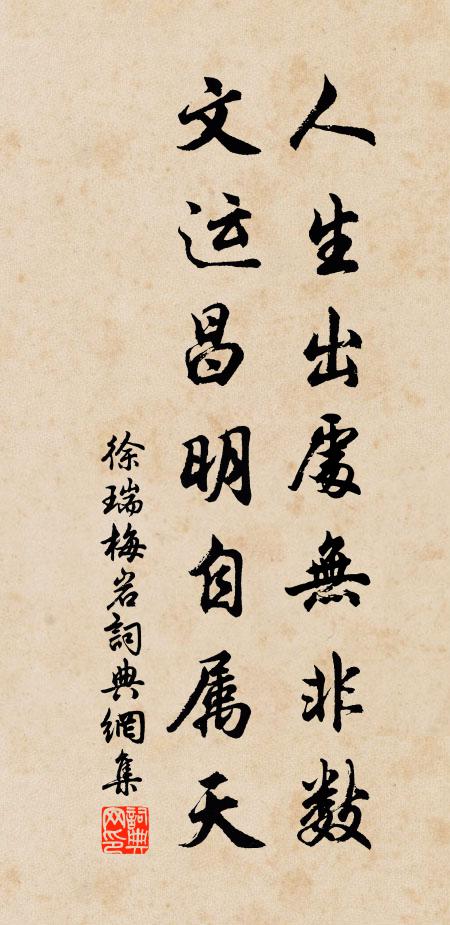 人生出處無非數
文运昌明自属天
徐瑞梅岩詞典網集
詞典网印